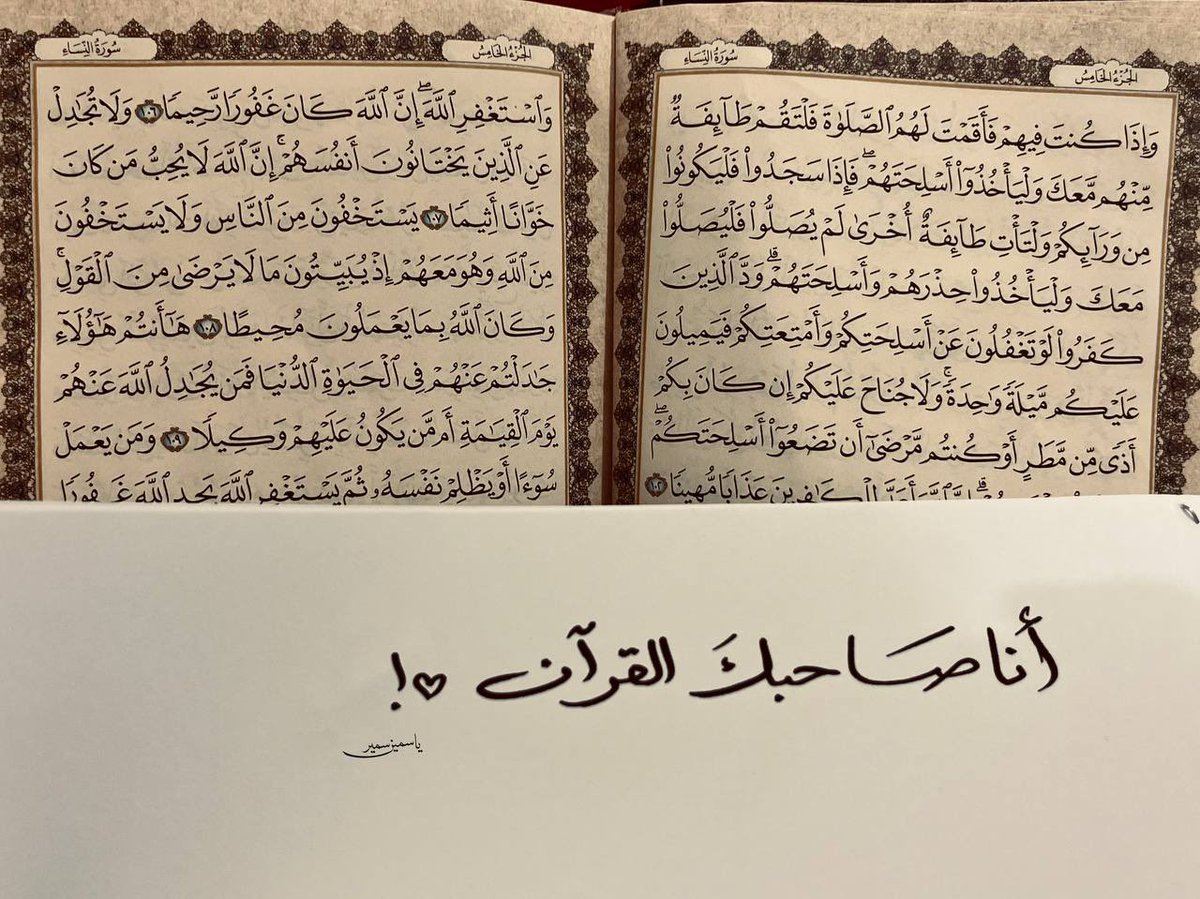 الجزء الخامس
سورة النساء
وَإِذَا كُنتَ فِيهِمْ فَأَقَمْتَ لَهُمُ ٱلصَّلَوٰةَ فَلْتَقُمْ طَآئِفَةٌ
مِّنْهُم مَّعَكَ وَلْيَأْخُذُوٓا۟ أَسْلِحَتَهُمْ ۖ فَإِذَا سَجَدُوا۟ فَلْيَكُونُوا۟
مِن وَرَآئِكُمْ وَلْتَأْتِ طَآئِفَةٌ أُخْرَىٰ لَمْ يُصَلُّوا۟ فَلْيُصَلُّوا۟
مَعَكَ وَلْيَأْخُذُوا۟ حِذْرَهُمْ وَأَسْلِحَتَهُمْ ۗ وَدَّ ٱلَّذِينَ
كَفَرُوا۟ لَوْ تَغْفُلُونَ عَنْ أَسْلِحَتِكُمْ وَأَمْتِعَتِكُمْ فَيَمِيلُونَ
عَلَيْكُم مَّيْلَةً وَٰحِدَةً ۚ وَلَا جُنَاحَ عَلَيْكُمْ إِن كَانَ بِكُمْ
أَذًى مِّن مَّطَرٍ أَوْ كُنتُم مَّرْضَىٰٓ أَن تَضَعُوٓا۟ أَسْلِحَتَكُمْ ۖ
إِنَّ ٱللَّهَ أَعَدَّ لِلْكَٰفِرِينَ عَذَابًا مُّهِينًا ١٠٢
الجزء الخامس
سورة النساء
وَٱسْتَغْفِرِ ٱللَّهَ ۖ إِنَّ ٱللَّهَ كَانَ غَفُورًا رَّحِيمًا ١٠٦ وَلَا تُجَٰدِلْ
عَنِ ٱلَّذِينَ يَخْتَانُونَ أَنفُسَهُمْ ۚ إِنَّ ٱللَّهَ لَا يُحِبُّ مَن كَانَ
خَوَّانًا أَثِيمًا ١٠٧ يَسْتَخْفُونَ مِنَ ٱلنَّاسِ وَلَا يَسْتَخْفُونَ
مِنَ ٱللَّهِ وَهُوَ مَعَهُمْ إِذْ يُبَيِّتُونَ مَا لَا يَرْضَىٰ مِنَ ٱلْقَوْلِ ۚ
وَكَانَ ٱللَّهُ بِمَا يَعْمَلُونَ مُحِيطًا ١٠٨ هَٰٓأَنتُمْ هَٰٓؤُلَآءِ
جَٰدَلْتُمْ عَنْهُمْ فِى ٱلْحَيَوٰةِ ٱلدُّنْيَا فَمَن يُجَٰدِلُ ٱللَّهَ عَنْهُمْ
يَوْمَ ٱلْقِيَٰمَةِ أَم مَّن يَكُونُ عَلَيْهِمْ وَكِيلًا ١٠٩ وَمَن يَعْمَلْ
سُوٓءًا أَوْ يَظْلِمْ نَفْسَهُۥ ثُمَّ يَسْتَغْفِرِ ٱللَّهَ يَجِدِ ٱللَّهَ غَفُورًا
أنا صَاحبكَ القرآن ♡!
ياسمين سمير